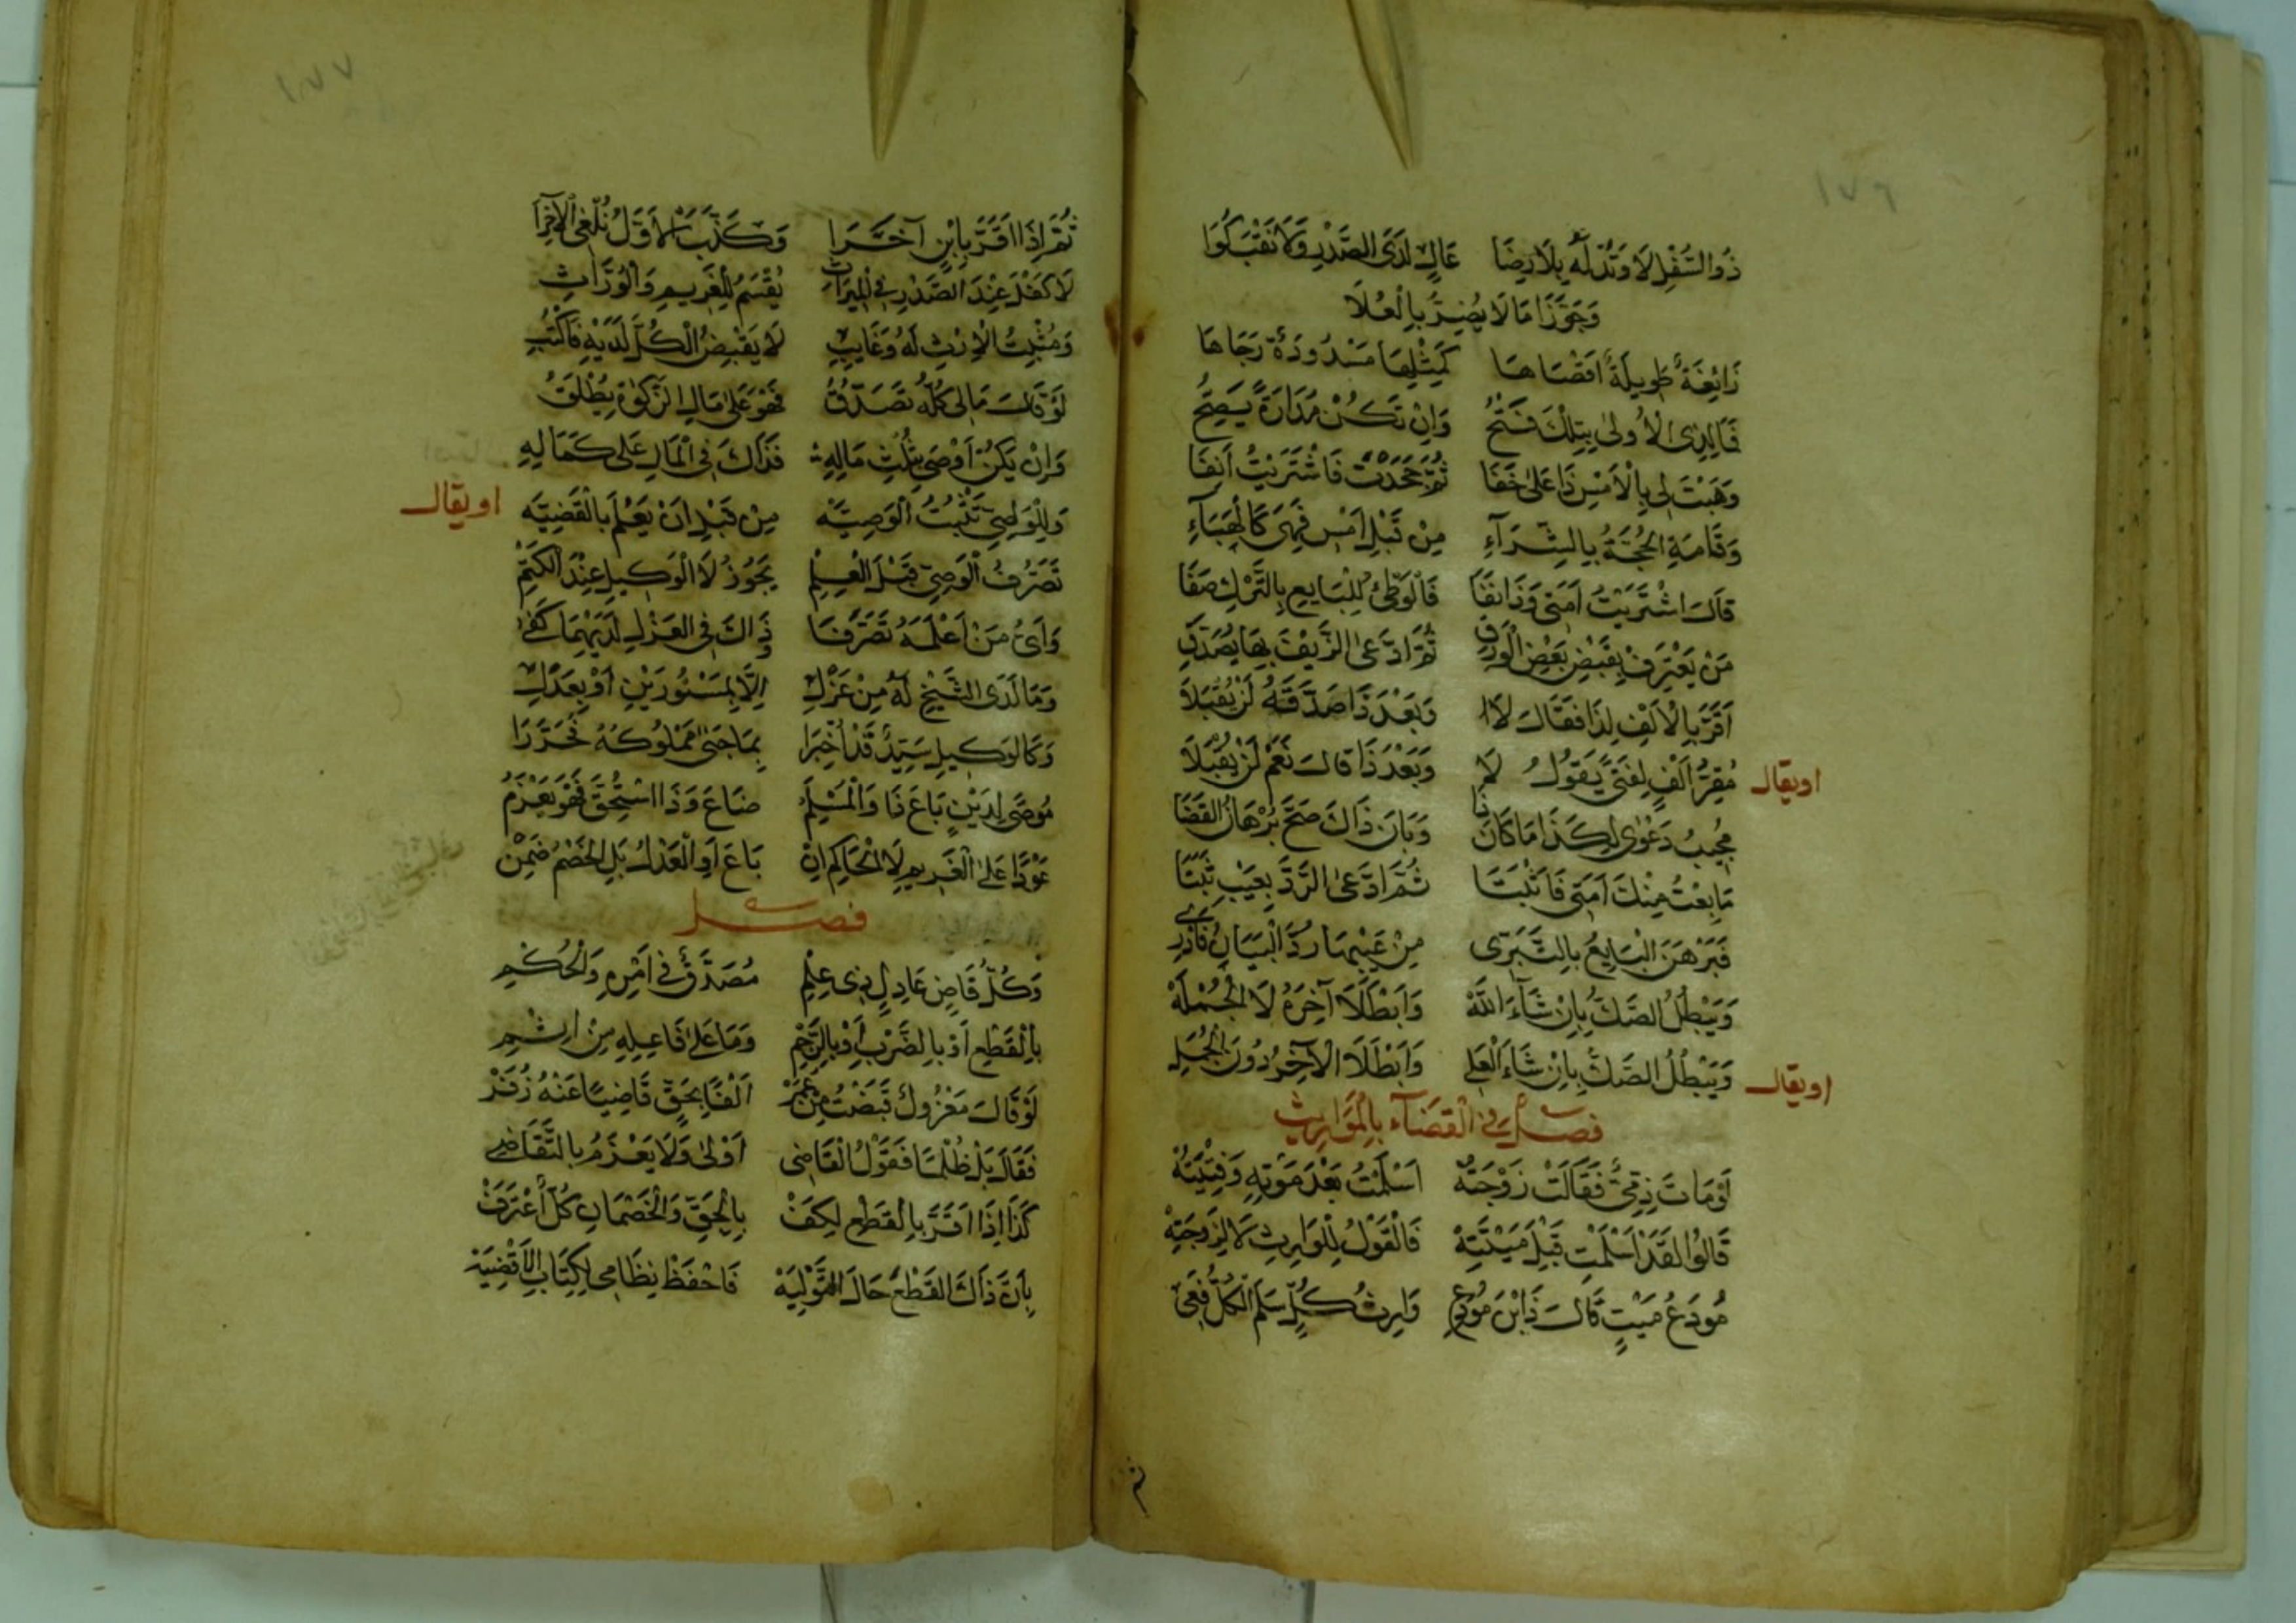 ١٧٦
ذُو السُّفْلِ لَا وَتْدَ لَهُ بِلَا رِضَا عَالٍ لَدَى الصَّدْرِ وَلَا نَقْبَ كُوَا
وَجَوَّزَا مَا لَا يُضِرُّ بِالْعُلَا
زَائِغَةٌ طَوِيلَةٌ أَقْصَاهَا كَمِثْلِهَا مَسْدُودَةٌ رَجَاهَا
فَمَا لِذِي الْأُولَى بِتِلْكَ فَتْحُ وَإِنْ تَكُنْ مُدَارَةً يَصِحُّ
وَهَبْتَ لِي بِالْأَمْسِ ذَا عَلَى خَفَا ثُمَّ جَحَدْتَ فَاشْتَرَيْتُ آنِفَا
وَقَامَةِ الْحُجَّةُ بِالشِّرَآءِ مِنْ قَبْلِ أَمْسِ فَهِيَ كَالْهَبَآءِ
قَالَ اشْتَرَيْتَ أَمَتِي وَذَا نَفَا فَالْوَطْئُ لِلْبَايِعِ بِالتَّرْكِ صَفَا
مَنْ يَعْتَرِفْ بِقَبْضِ بَعْضِ الْوَرَقِ ثُمَّ ادَّعَى الزَّيْفَ بِهَا يُصَدَّقِ
أَقَرَّ بِالْأَلْفِ لِذَا فَقَالَ لَا وَبَعْدَ ذَا صَدَّقَهُ لَنْ يُقْبَلَا
مُقِرُّ أَلْفٍ لِفَتًى يَقُولُ لَا وَبَعْدَ ذَا قَالَ نَعَمْ لَنْ يُقْبَلَا اويقال
مُجِيبُ دَعْوَى لِكَذَا مَا كَانَ ذَا وَبَانَ ذَاكَ صَحَّ بُرْهَانُ الْقَضَا
مَا بِعْتُ مِنْكَ أَمَتِي فَأَثْبَتَا ثُمَّ ادَّعَى الرَّدَّ بِعَيْبٍ ثَبَتَا
فَبَرْهَنَ الْبَايِعُ بِالتَّبَرِّى مِنْ عَيْبِهَا رُدَّ الْبَيَانُ فَادْرِ
وَيَبْطُلُ الصَّكُّ بِإِنْ شَآءَ اللَّهْ وَأَبْطَلَا آخِرَهُ لَا الْجُمْلَهْ
وَيَبْطُلُ الصَّكُّ بِإِنْ شَاءَ الْعَلِي وَأَبْطَلَا الْآخِرَ دُونَ الْجُمَلِ اويقال
فصل في القضآء بالمواريث
لَوْ مَاتَ ذِمِّيٌّ فَقَالَتْ زَوْجَتُهْ أَسْلَمْتُ بَعْدَ مَوْتِهِ وَفِتْيَتُهْ
قَالُوا لَقَدْ أَسْلَمْتِ قَبْلَ مَيْتَتِهْ فَالْقَوْلُ لِلْوَارِثِ لَا لِزَوْجَتِهْ
مُودَعُ مَيْتٍ قَالَ ذَا ابْنُ مُودِعِي وَارِثُ كُلٍّ سَلَّمَ الْكُلَّ فَعِي
١٧٧
ثُمَّ إِذَا أَقَرَّ بِابْنٍ آخَرَا وَكَذَّبَ الْأَوَّلُ نُلْغِي الْآخَرَا
لَا كَفْلَ عِنْدَ الصَّدْرِ فِي الْمِيرَاثِ يُقْسَمُ لِلْغَرِيمِ وَالْوُرَّاثِ
وَمُثْبِتُ الْإِرْثِ لَهُ وَغَايِبِ لَا يَقْبِضُ الْكُلَّ لَدَيْهِ فَاكْتُبِ
لَوْ قَالَ مَالِي كُلُّهُ تَصَدُّقُ فَهْوَ عَلَى مَالِ الزَّكٰوةِ يُطْلَقُ
وَإِنْ يَكُنْ أَوْصَى بِثُلْثِ مَالِهِ فَذَاكَ فِي الْمَالِ عَلَى كَمَالِهِ
وَلِلْوَصِيِّ تَثْبُتُ الْوَصِيَّه مِنْ قَبْلِ أَنْ يَعْلَمَ بِالْقَضِيَّه اويقال
تَصَرُّفُ الْوَصِيِّ قَبْلَ الْعِلْمِ يَجُوزُ لَا الْوَكِيلِ عِنْدَ الْكَتْمِ
وَأَيُّ مَنْ أَعْلَمَهُ تَصَرَّفَا ذَاكَ فِي الْعَزْلِ لَدَيْهِمَا كَفَى
وَمَا لَدَى الشَّيْخِ لَهُ مِنْ عَزْلِ إِلَّا بِمَسْتُورَيْنِ أَوْ بِعَدْلِ
وَكَالْوَكِيلِ سَيِّدٌ قَدْ أُخْبِرَا بِمَا جَنَى مَمْلُوكُهُ فَحَرَّرَا
مُوصًى لِدَيْنٍ بَاعَ ذَا وَالْمُسْلَمُ ضَاعَ وَذَا اسْتُحِقَّ فَهْوَ يَغْرَمُ
عَوْدًا عَلَى الْغَرِيمِ لَا الْحَاكِمِ إِنْ بَاعَ أَوِ الْعَدْلُ بَلِ الْخَصْمُ ضَمِنْ
فصل
وَكُلُّ قَاضٍ عَادِلٍ ذِي عِلْمِ مُصَدَّقٌ فِي أَمْرِهِ وَالْحُكْمِ
بِالْقَطْعِ أَوْ بِالضَّرْبِ أَوْ بِالرَّجْمِ وَمَا عَلَى فَاعِلِهِ مِنْ إِثْمِ
لَوْ قَالَ مَعْزُولٌ قَبَضْتُ مِنْ عُمَرْ أَلْفًا بِحَقٍّ قَاضِيًا عَنْهُ زُفَرْ
فَقَالَ بَلْ ظُلْمًا فَقَوْلُ الْقَاضِي أَوْلَى وَلَا يَغْرَمُ بِالتَّقَاضِي
كَذَا إِذَا أَقَرَّ بِالْقَطْعِ لِكَفْ بِالْحَقِّ وَالْخَصْمَانِ كُلٌّ اعْتَرَفْ
بِأَنَّ ذَاكَ الْقَطْعَ حَالَ التَّوْلِيَهْ فَاحْفَظْ نِظَامِي لِكِتَابِ الْأَقْضِيَهْ